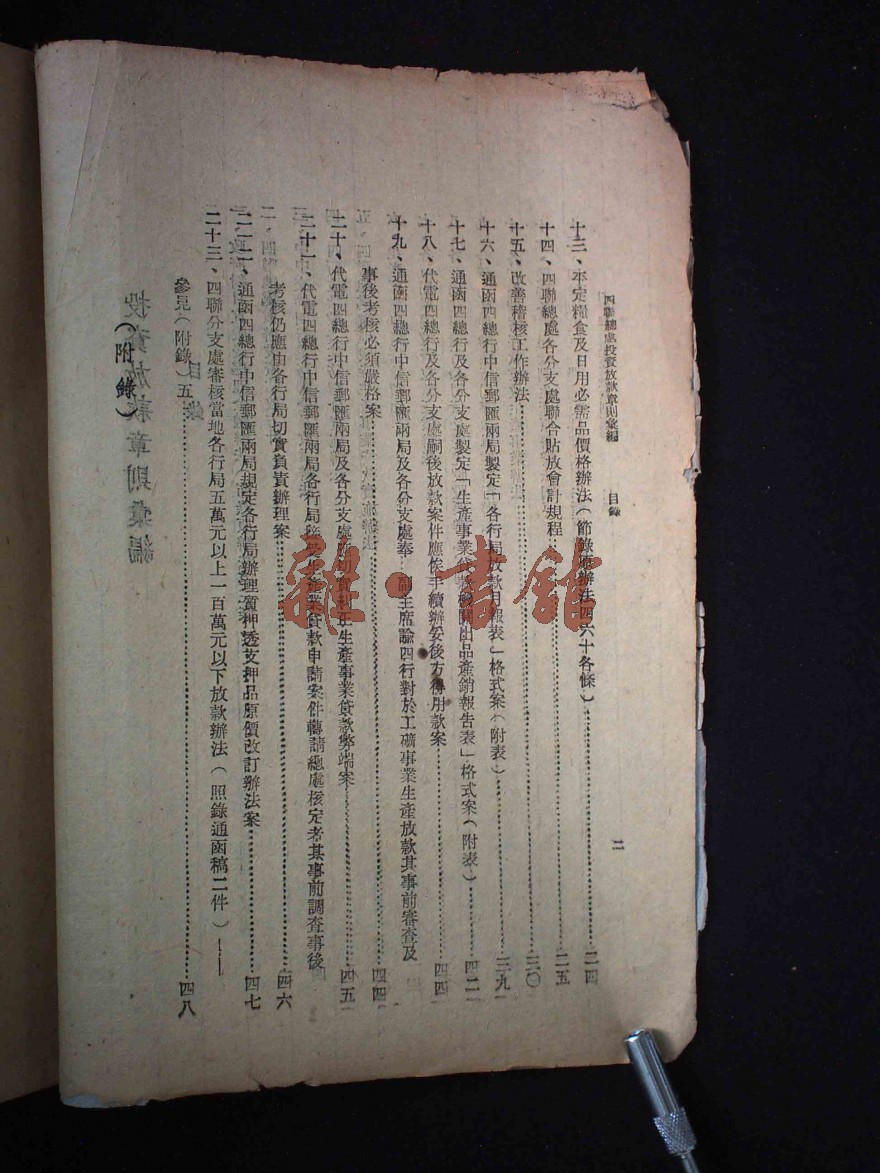 四聯總處投資放款章則彙編 目錄 二
十三、平定糧食及日用必需品價格辦法(節錄原辦法四六十各條)……二四
十四、四聯總處各分支處聯合貼放會計規程……二五
十五、改善稽核工作辦法……三〇
十六、通函四總行中信郵匯兩局製定「各行局放款月報表」格式案(附表)……三九
十七、通函四總行及各分支處製定「生產事業貸款機關出品產銷報告表」格式案(附表)……四二
十八、代電四總行及各分支處嗣後放款案件應俟手續辦妥後方得用款案……四四
十九、通函四總行中信郵匯兩局及各分支處奉 副主席諭四行對於工礦事業生產放款其事前審查及
事後考核必須嚴格案……四四
二十、代電四總行中信郵匯兩局及各分支處應切實糾正生產事業貸款弊端案……四五
二十一、代電四總行中信郵匯兩局各行局接受生產事業貸款申請案件轉請總處核定者其事前調查事後
考核仍應由各行局切實負責辦理案……四六
二十二、通函四總行中信郵匯兩局規定各行局辦理質押透支押品原價改訂辦法案……四七
二十三、四聯分支處審核當地各行局五萬元以上一百萬元以下放款辦法(照錄通函稿二件)——
參見(附錄)五……四八
(附錄)
投資放款章則彙編
目錄
雜·書館